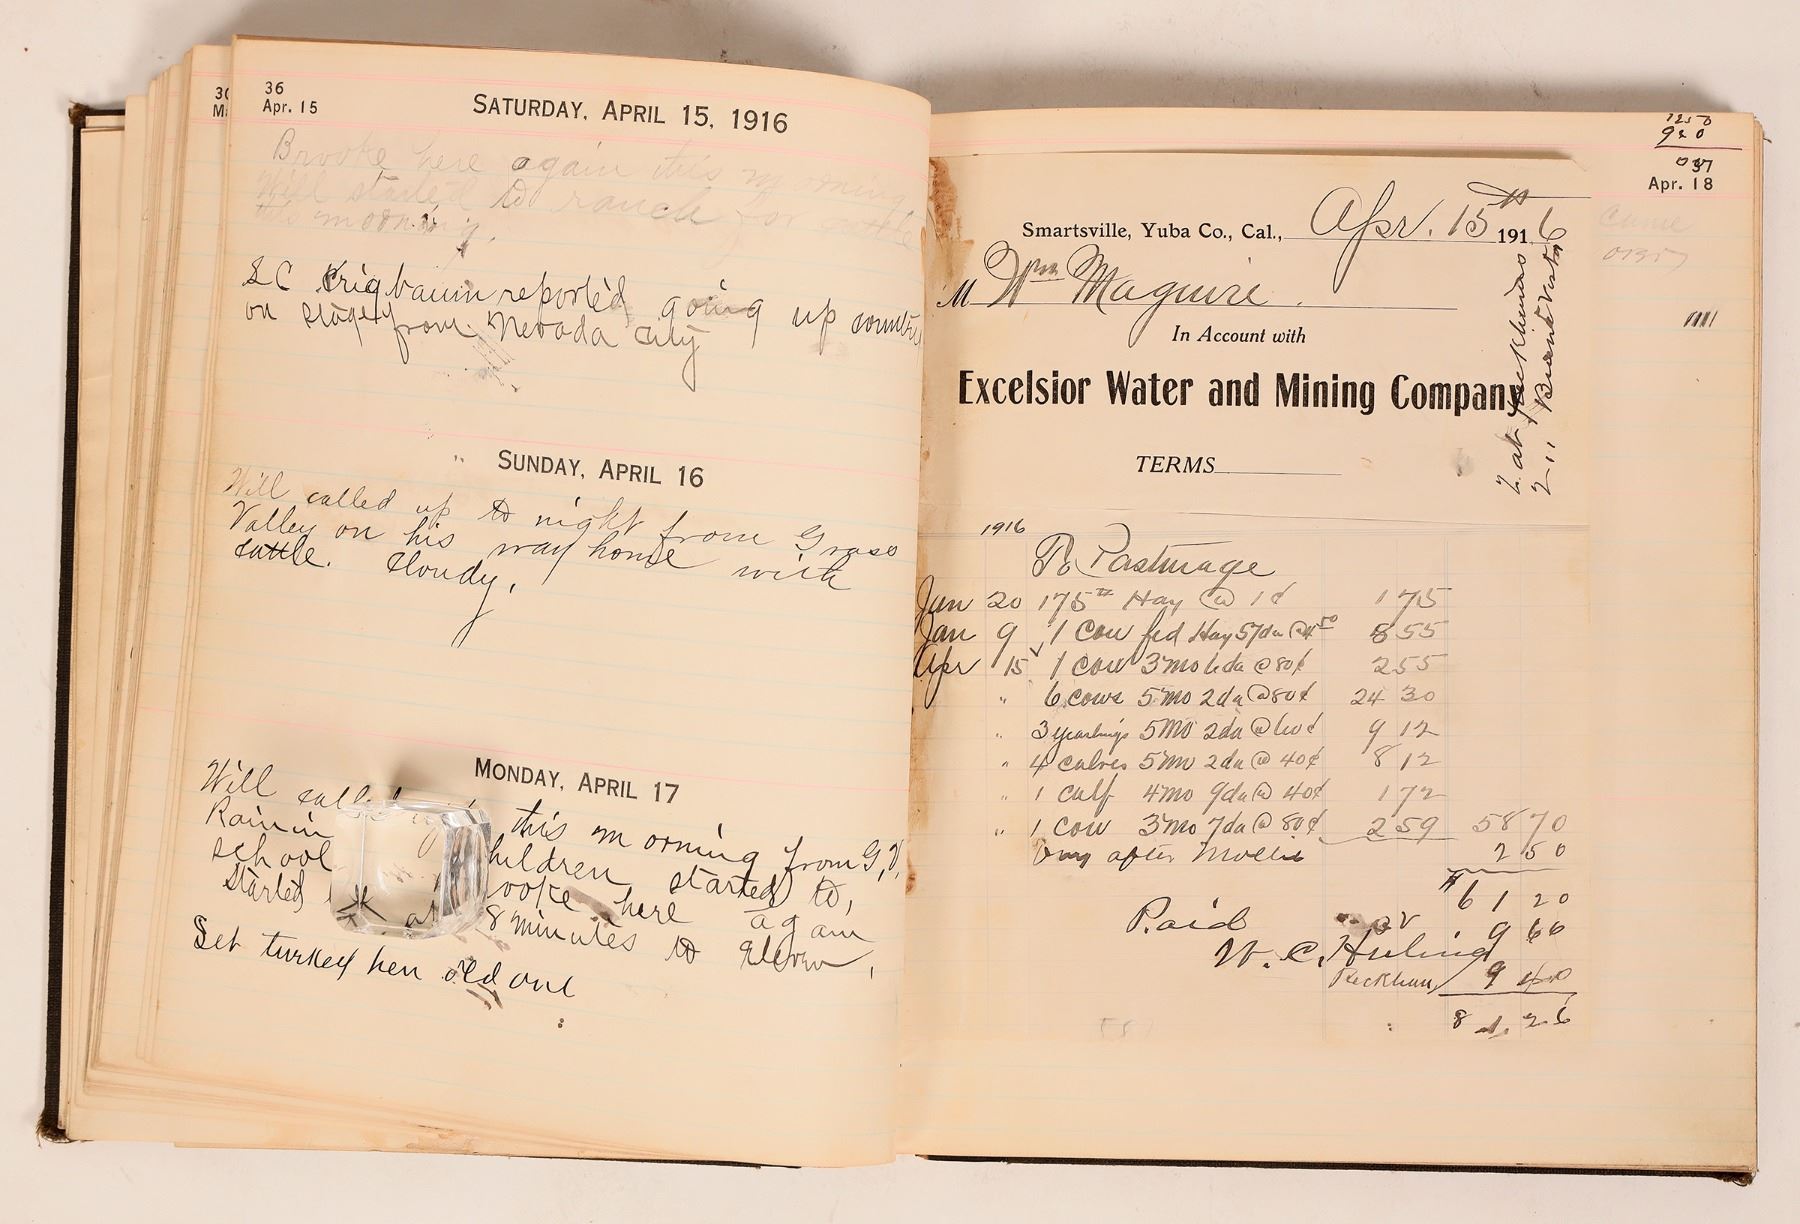 36
Apr. 15
SATURDAY, APRIL 15, 1916
Brooke here again this morning
Will started to ranch for cattle
this morning.
L C Krigbaum reported going up country
on stage from Nevada City
SUNDAY, APRIL 16
Will called up to night from Grass
Valley on his way home with
cattle. Cloudy.
MONDAY, APRIL 17
Will called this morning from G, V,
Rain in
school children started to,
Started ooke here again
at 8 minutes to eleven,
Set turkey hen old one
1250
920
37
Apr. 18
came
Smartsville, Yuba Co., Cal., Apr. 15th 1916
M Wm Maguire.
In Account with
Excelsior Water and Mining Company
TERMS
2 at
2 " Buena Vista
1916
To Pasturage
Jan 20 175# Hay @ 1¢ 175
Jan 9 1 Cow fed Hay 57da @ 4 50 855
Apr 15 1 cow 3mo 6da @ 80¢ 255
" 6 cows 5 mo 2da @ 80¢ 24 30
" 3 yearlings 5 Mo 2da @ 60¢ 9 12
" 4 calves 5 mo 2da @ 40¢ 8 12
" 1 calf 4mo 9da @ 40¢ 1 72
" 1 cow 3mo 7da @ 80¢ 2 59 58 70
after Mollie 2 50
61 20
Paid 9 66
W. C. Huling
Peckham 9 40
8 26